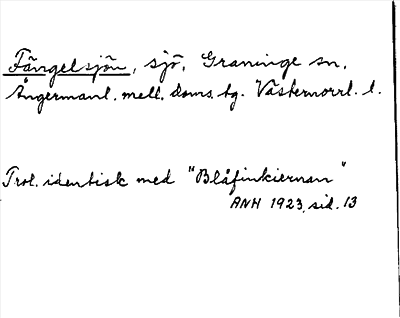 Fängelsjön, sjö, Graninge sn,
Ångermanl. mell. doms. tg. Västernorrl. l.
Trol. identisk med "Blåfinkiernan"
ANH 1923, sid. 13